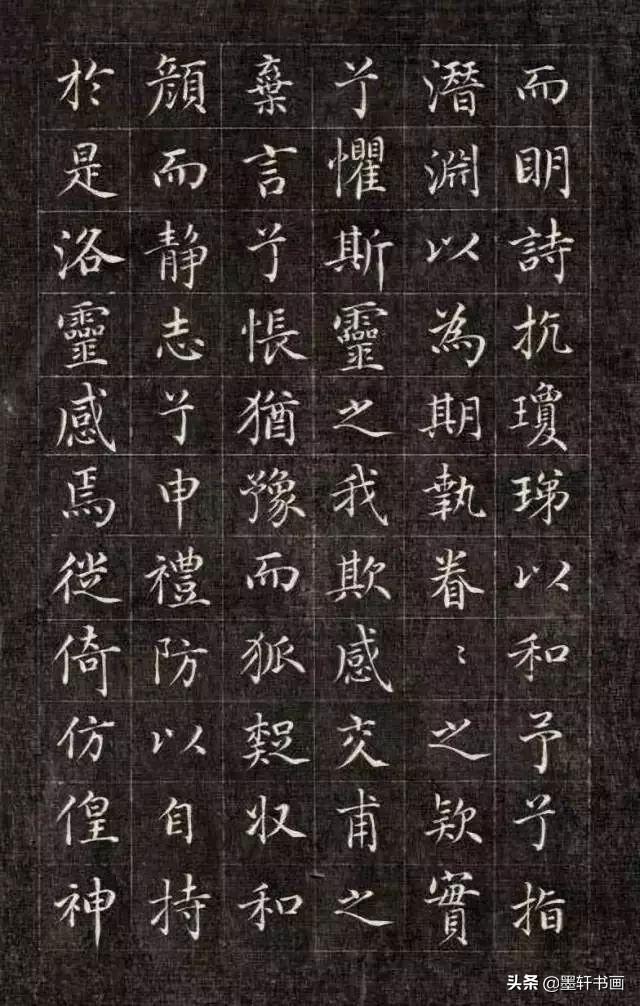 而眀詩抗瓊珶以和予兮指
潛淵以為期執眷〻之欵實
兮懼斯靈之我欺感交甫之
棄言兮悵猶豫而狐疑收和
顏而静志兮申禮防以自持
於是洛靈感焉徙倚仿偟神
头条 @墨轩书画